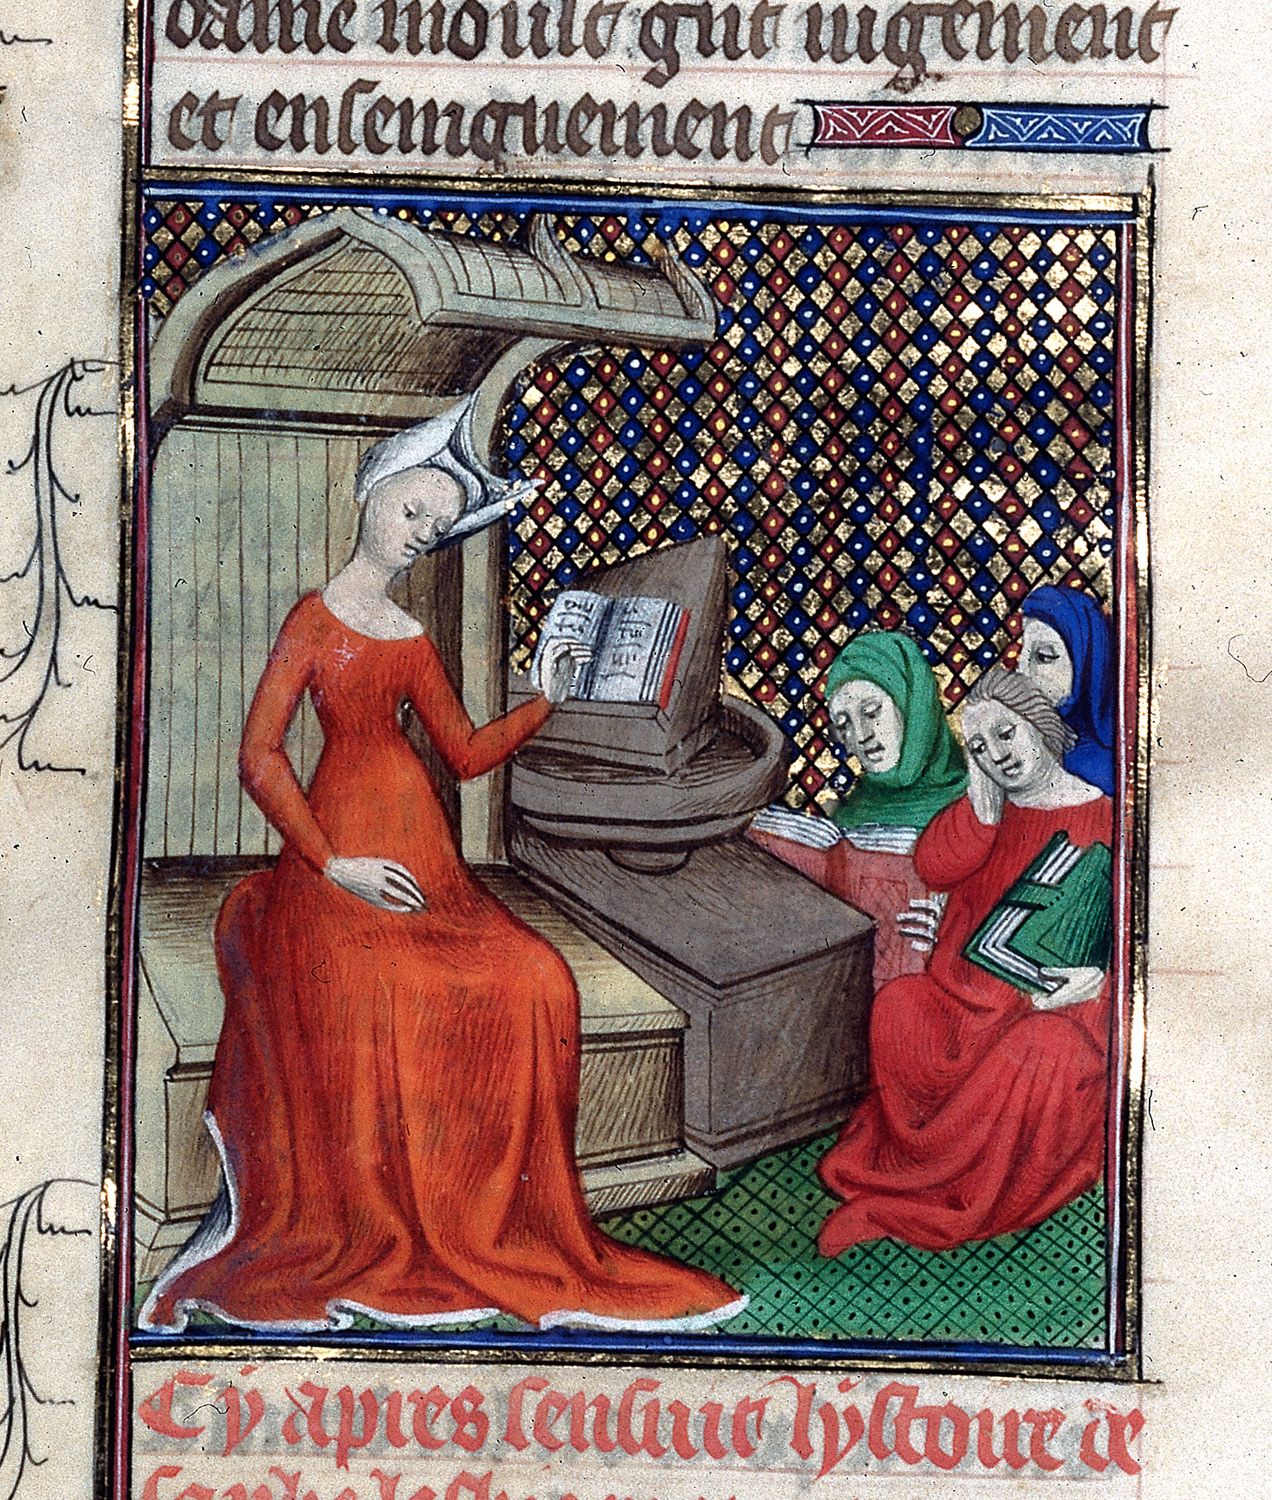 dame moult grnt iugement
et enseingnement
Cy apres sensuit lystoire de